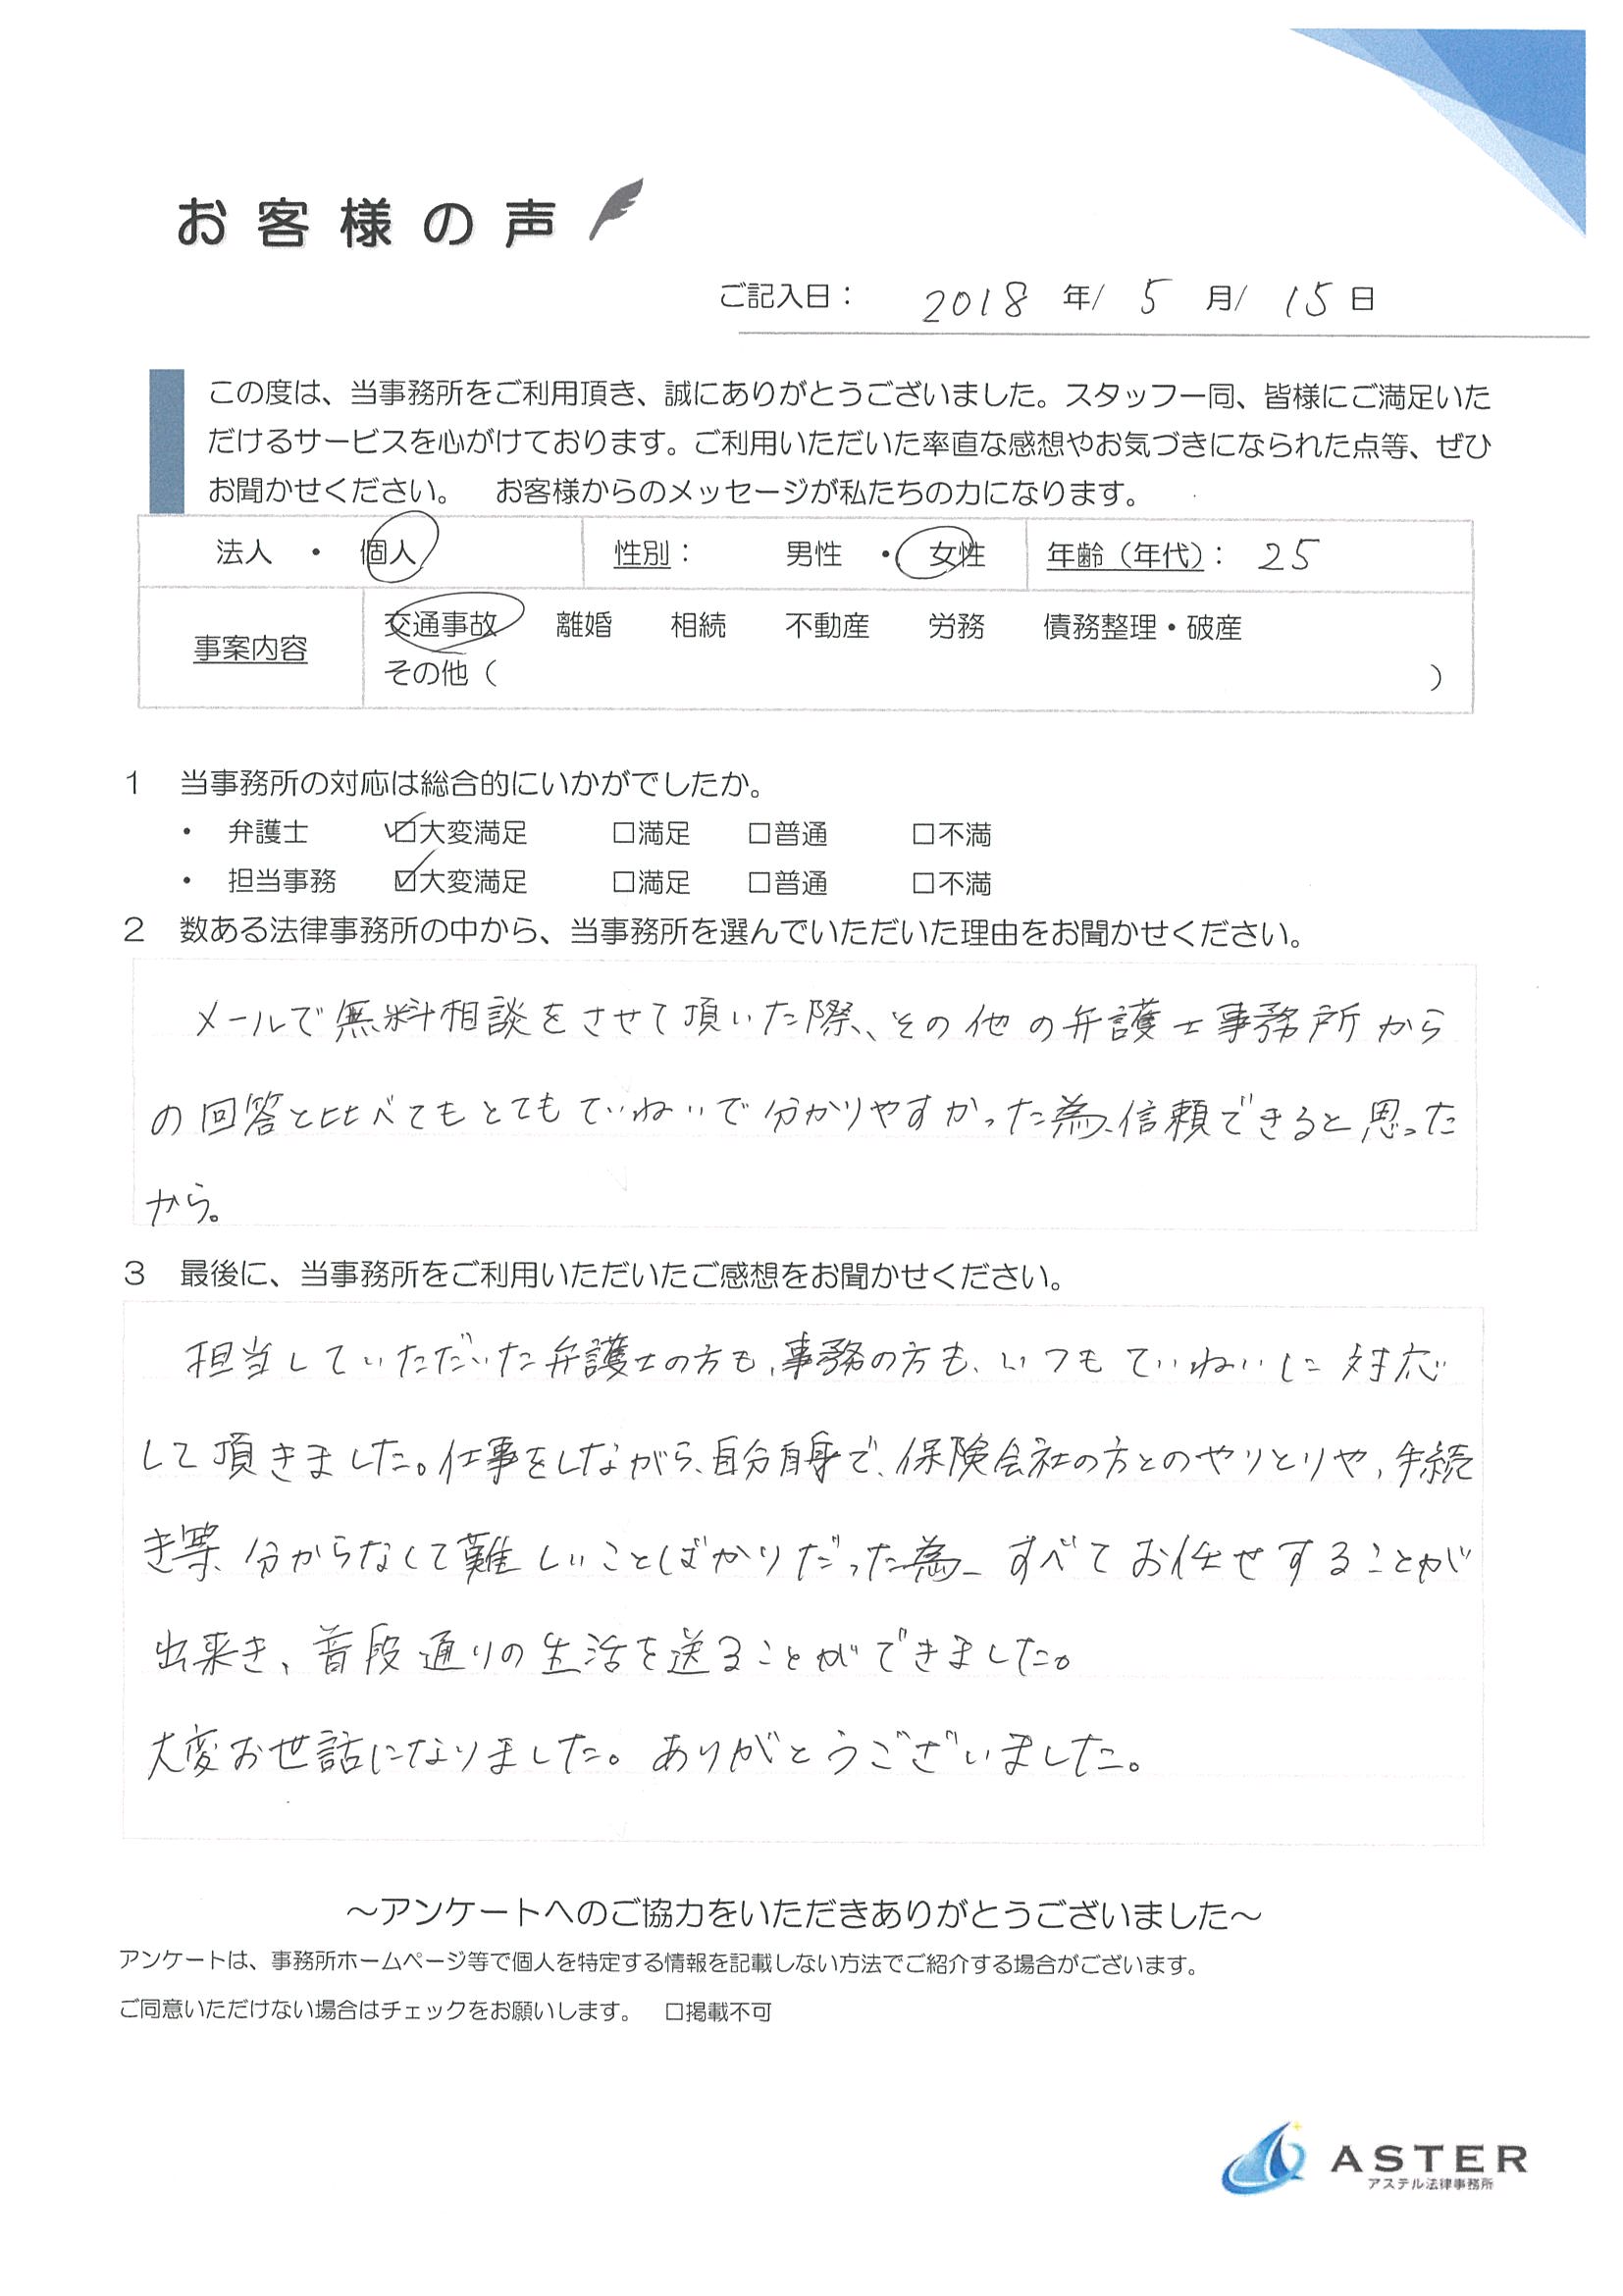 お客様の声
ご記入日： 2018 年/ 5 月/ 15 日
この度は、当事務所をご利用頂き、誠にありがとうございました。スタッフ一同、皆様にご満足いた
だけるサービスを心がけております。ご利用いただいた率直な感想やお気づきになられた点等、ぜひ
お聞かせください。 お客様からのメッセージが私たちの力になります。
法人 ・ 個人 性別： 男性 ・ 女性 年齢（年代）： 25
事案内容 交通事故 離婚 相続 不動産 労務 債務整理・破産
その他（ ）
1 当事務所の対応は総合的にいかがでしたか。
・ 弁護士 ☑大変満足 □満足 □普通 □不満
・ 担当事務 ☑大変満足 □満足 □普通 □不満
2 数ある法律事務所の中から、当事務所を選んでいただいた理由をお聞かせください。
メールで無料相談をさせて頂いた際、その他の弁護士事務所から
の回答と比べてもとてもていねいで分かりやすかった為、信頼できると思った
から。
3 最後に、当事務所をご利用いただいたご感想をお聞かせください。
担当していただいた弁護士の方も、事務の方も、いつもていねいに対応
して頂きました。仕事をしながら、自分自身で、保険会社の方とのやりとりや、手続
き等、分からなくて難しいことばかりだった為、すべてお任せすることが
出来き、普段通りの生活を送ることができました。
大変お世話になりました。ありがとうございました。
～アンケートへのご協力をいただきありがとうございました～
アンケートは、事務所ホームページ等で個人を特定する情報を記載しない方法でご紹介する場合がございます。
ご同意いただけない場合はチェックをお願いします。 □掲載不可
ASTER
アステル法律事務所